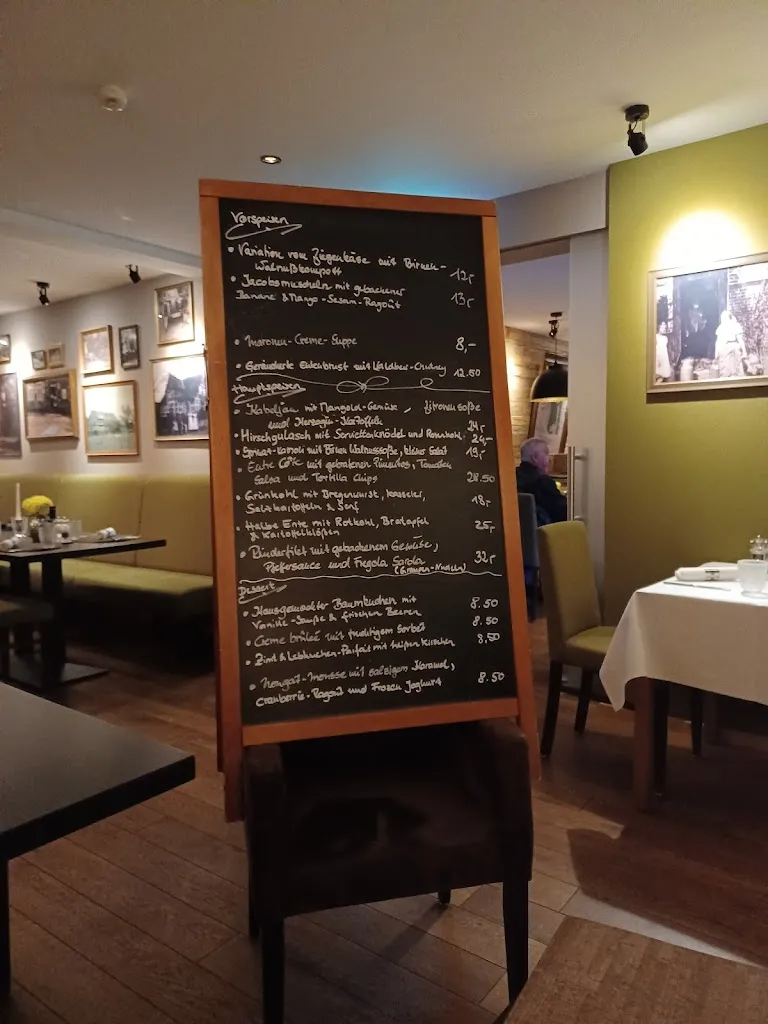 Vorspeisen
• Variation vom Ziegenkäse mit Birnen-
Walnußkompott 12,-
• Jacobsmuscheln mit gebackener
Banane & Mango-Sesam-Ragoût 13,-
• Maronen-Creme-Suppe 8,-
• Geräucherte Entenbrust mit Chutney 12.50
Hauptspeisen
• Kabeljau mit Mangold-Gemüse, Zitronensoße
und Herzogin-Kartoffeln 24,-
• Hirschgulasch mit Serviettenknödel und Rosenkohl 24,-
• Spinat-Ravioli mit Birnen Walnusssoße, kleiner Salat 19,-
• mit gebratenen Pimientos, Tomaten
Salsa und Tortilla Chips 28.50
• Grünkohl mit Bregenwurst, Kasseler,
Salzkartoffeln & Senf 18,-
• Halbe Ente mit Rotkohl, Bratapfel
& Kartoffelklößen 25,-
• Rinderfilet mit gebackenem Gemüse,
Pfeffersauce und Fregola Sarda 32,-
Dessert
• Hausgemachter Baumkuchen mit 8.50
Vanille-Soße & frischen Beeren
• Creme brûleé mit fruchtigem Sorbet 8.50
• Zimt & Lebkuchen-Parfait mit heißen Kirschen 8,50
• Nougat-Mousse mit salzigem Karamel,
Cranberrie-Ragoût und Frozen Joghurt 8.50